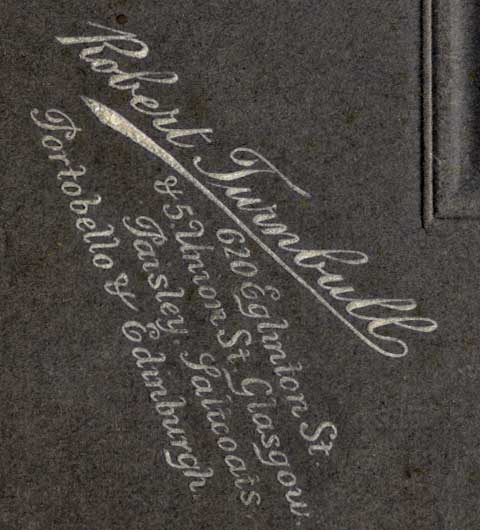 Robert Turnbull
620 Eglinton St.
& 5 Union St. Glasgow.
Paisley. Saltcoats.
Portobello & Edinburgh.